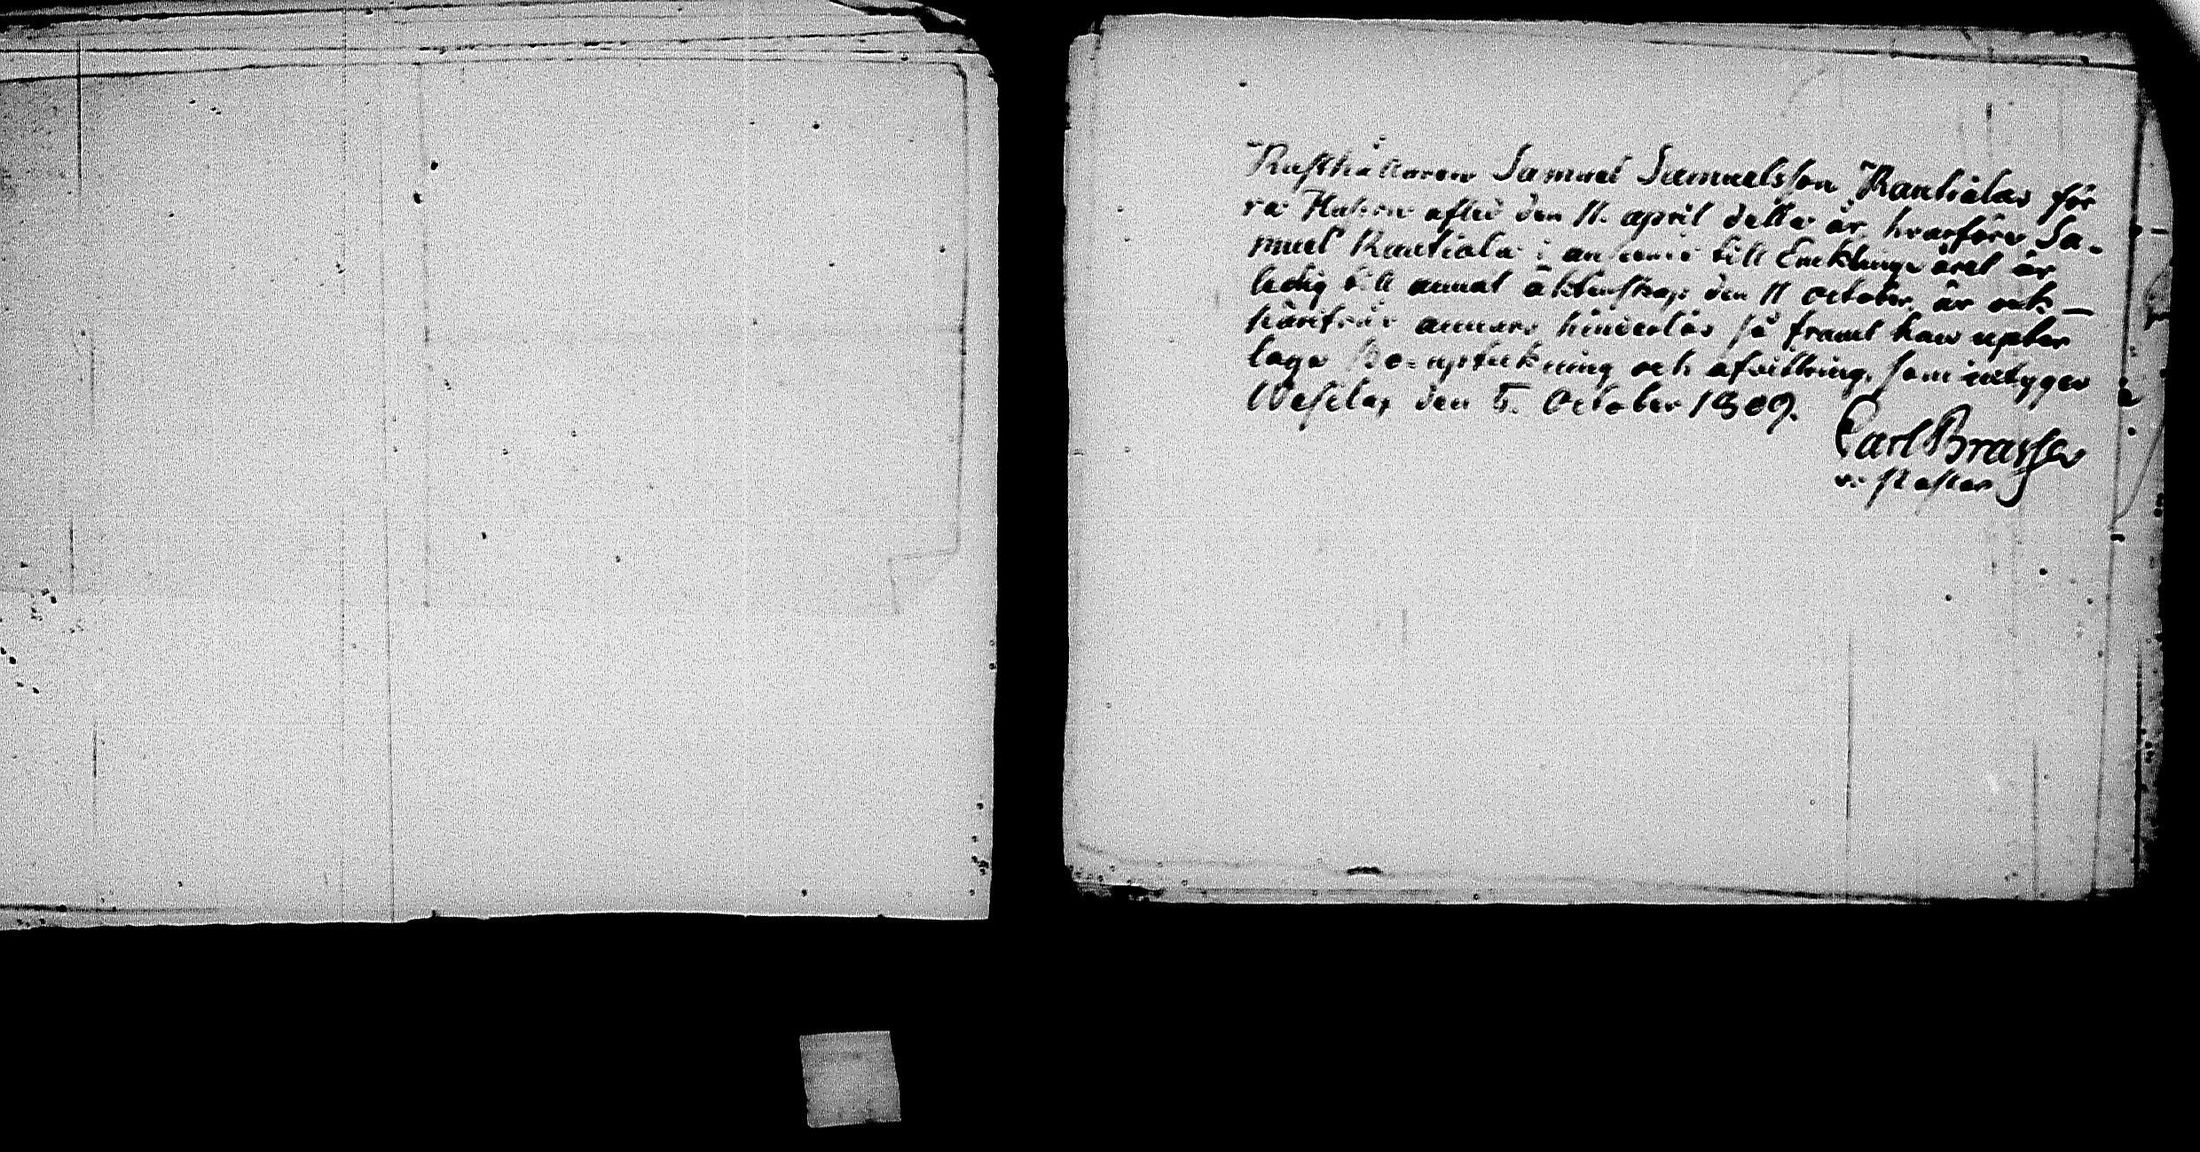 Rusthållaren Samuel Samuelsson Rautialas för
ra Hustru afled den 11. april detta år, hvarföre Sa-
muel Rautiala i anseende till Encklinge året är
ledig till annat äktenskap den 11 October, är ock
härifrån annars hinderlös så framt han
Bo-uptekning och afvittring, som intygar
Wesilax den 5. October 1809.
Carl Brasser
v. Pastor